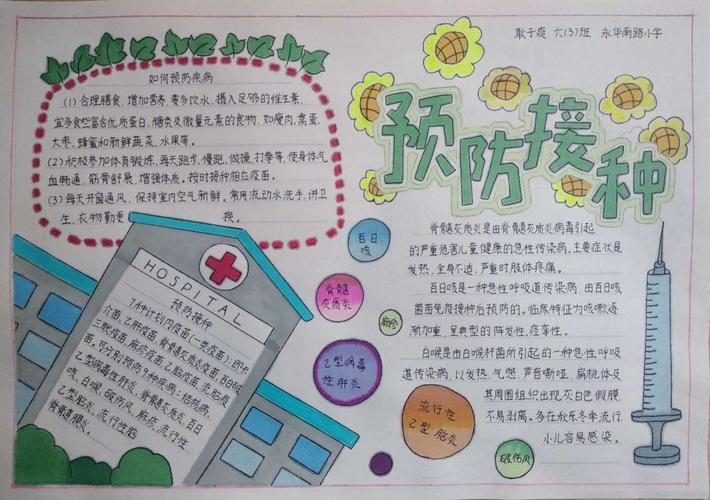 耿子爽 六(3)班 永华南路小学
预防接种
如何预防疾病
(1)合理膳食,增加营养,要多饮水,摄入足够的维生素,
宜多食些富含优质蛋白,糖类及微量元素的食物,如瘦肉,禽蛋,
大枣,蜂蜜和新鲜蔬菜,水果等。
(2)积极参加体育锻炼,每天跑步,慢跑,做操,打拳等,使身体气
血畅通,筋骨舒展,增强体质。按时接种相应疫苗。
(3)每天开窗通风,保持室内空气新鲜。常用流动水洗手,讲卫
生,衣物勤更 换。
HOSPITAL
预防接种
7种计划内疫苗(一类疫苗):即卡
介苗,乙肝疫苗,脊髓灰质炎疫苗,百白破
三联疫苗,麻疹疫苗,乙脑疫苗,流脑疫
苗。可分别预防9种疾病:结核病,
乙型病毒性肝炎,脊髓灰质炎,百日
咳,白喉,破伤风,麻疹,流行性
乙型脑炎,流行性脑
脊髓膜炎。
百日
咳
脊髓
灰质炎
麻疹
乙型病毒
性肝炎
流行性
乙型脑炎
破伤风
脊髓灰质炎是由脊髓灰质炎病毒引起
的严重危害儿童健康的急性传染病,主要症状是
发热,全身不适,严重时肢体疼痛。
百日咳是一种急性呼吸道传染病,由百日咳
菌苗免疫接种后预防的。临床特征为咳嗽逐
渐加重,呈典型的阵发性,痉挛性。
白喉是由白喉杆菌所引起的一种急性呼吸
道传染病,以发热,气憋,声音嘶哑,扁桃体及
其周围组织出现灰白色假膜
不易剥离。多在秋冬季流行
小儿容易感染。